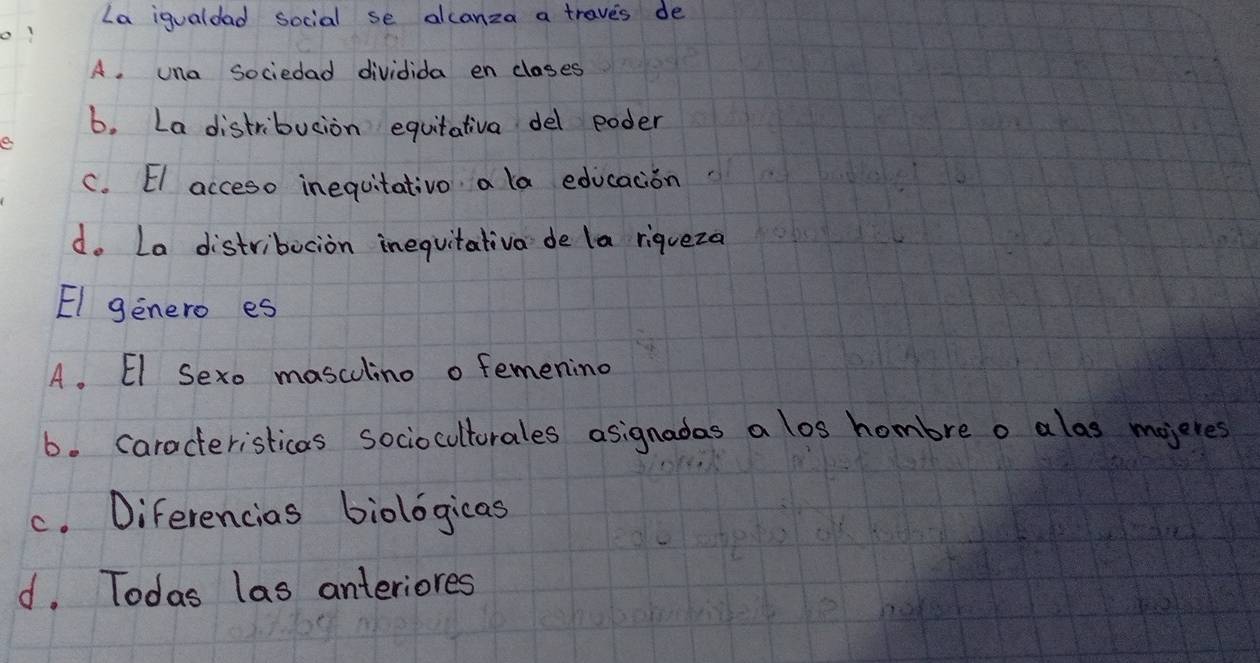 La igualdad social se alcanza a través de
A. una sociedad dividida en clases
b. La distribución equitativa del poder
c. El acceso inequitativo a la educación
d. La distribución inequitativa de la riqueza
El género es
A. El sexo masculino o femenino
b. características socioculturales asignadas a los hombre o alas mujeres
c. Diferencias biológicas
d. Todas las anteriores